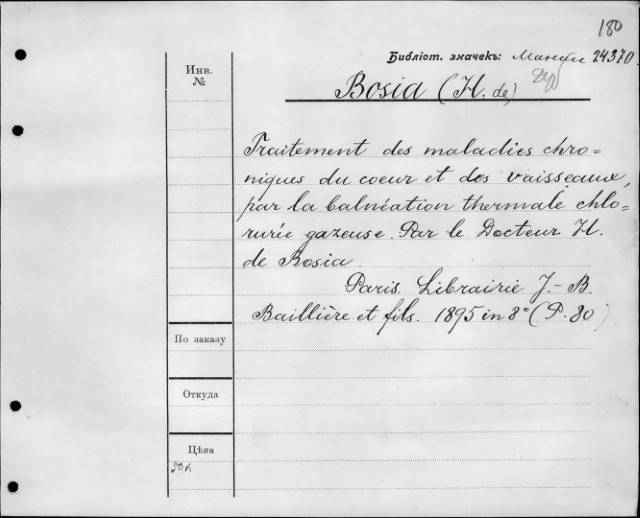 180
Библіот. значекъ: 24370
Инв.
№
Bosia (H. de)
Traitement des maladies chro=
niques du coeur et des vaisseaux,
par la balnéation thermale chlo-
rurée gazeuse. Par le Docteur H.
de Bosia.
Paris. Librairie J.-B.
Baillière et fils. 1895 in 8° (P. 80)
По заказу
Откуда
Цѣна